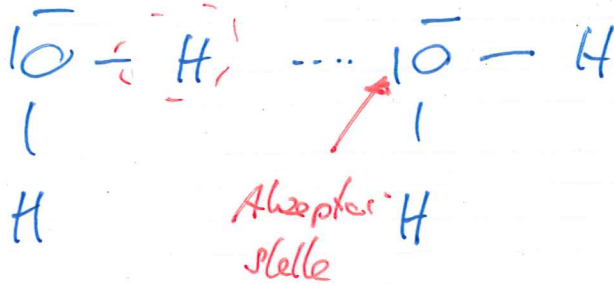 |O̅ – H ···· |O̅ – H
|
H
|
H
Akzeptor-
stelle